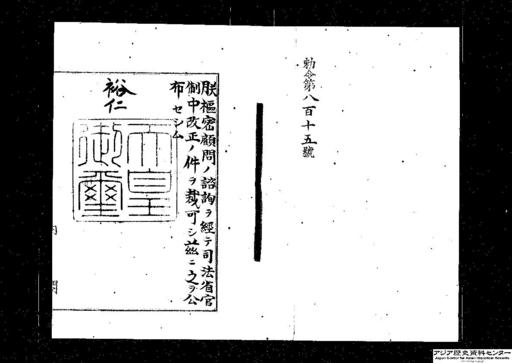 勅令第八百十五號
朕樞密顧問ノ諮詢ヲ經テ司法省官
制中改正ノ件ヲ裁可シ茲ニ之ヲ公
布セシム
裕仁
天皇
御璽
内閣
アジア歴史資料センター
Japan Center for Asian Historical Records